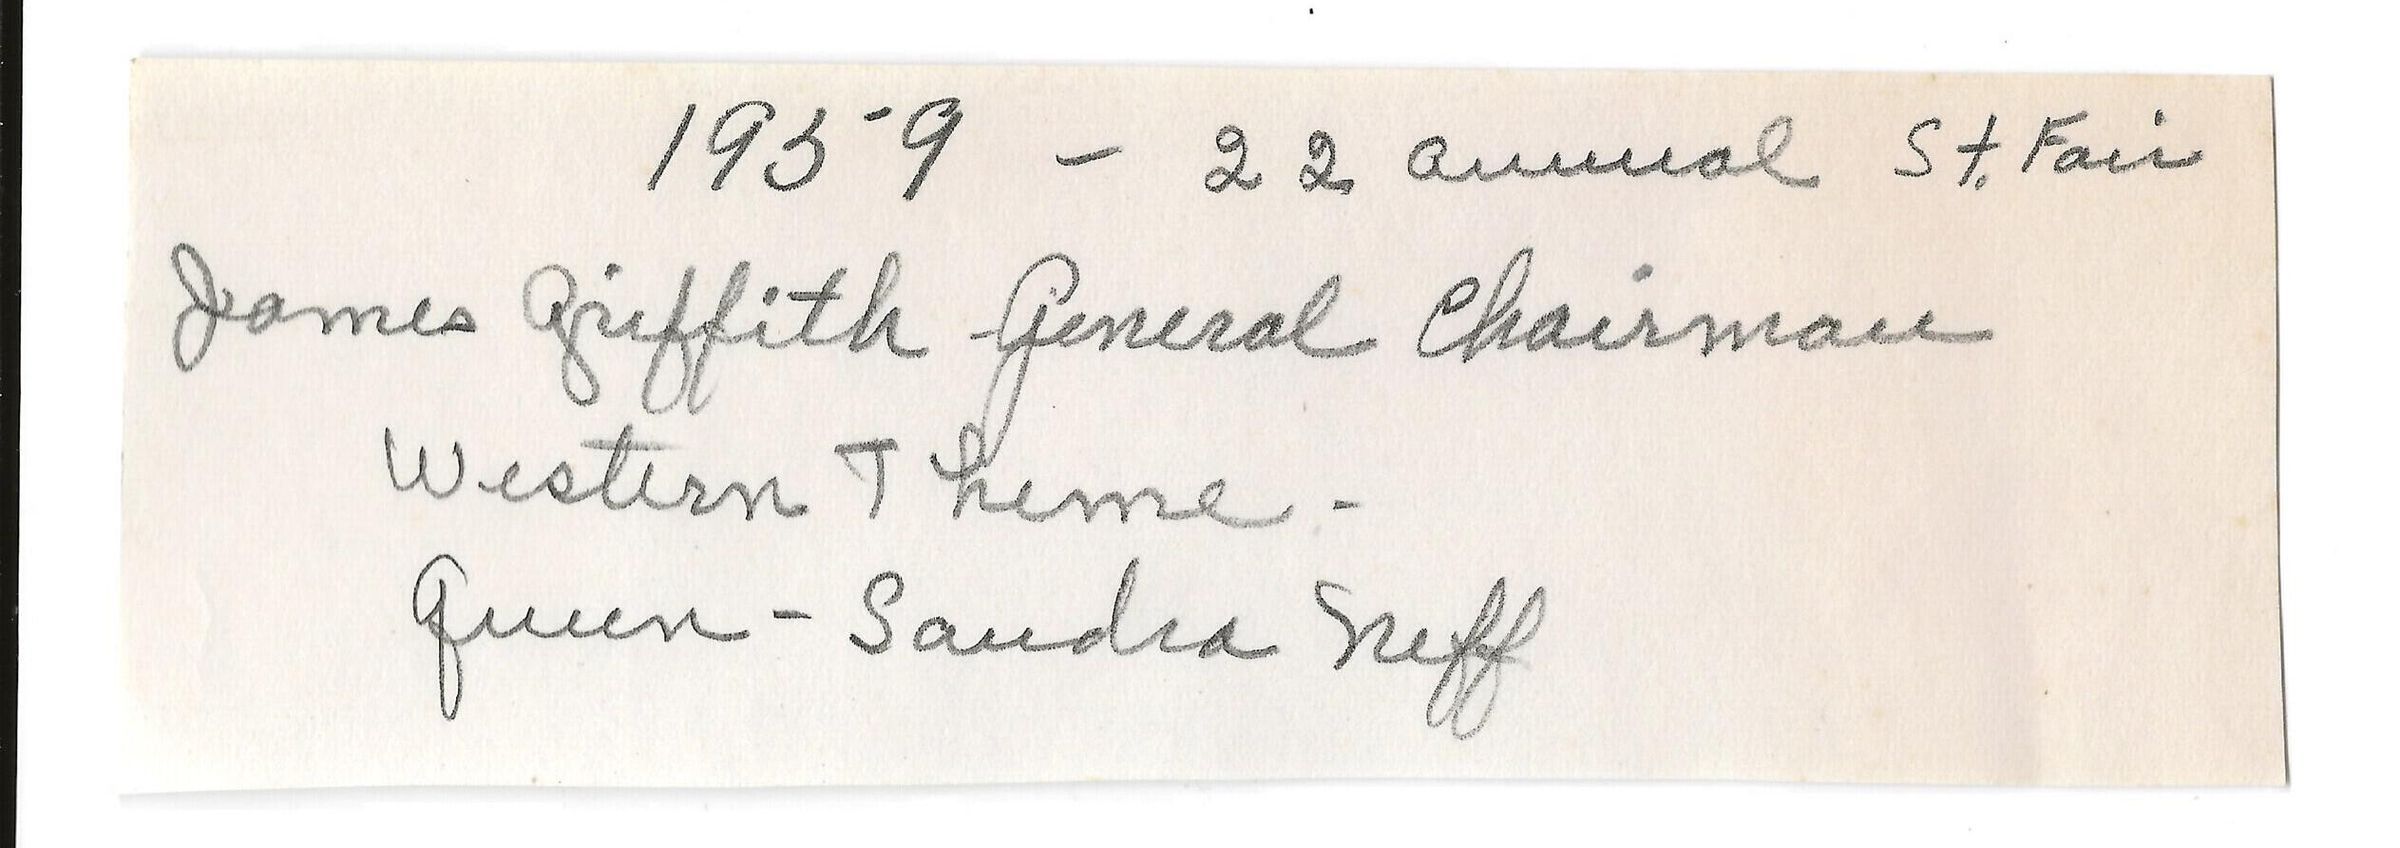 1959 - 22 annual St. Fair
James Griffith General Chairman
Western Theme -
Queen - Sandra Neff